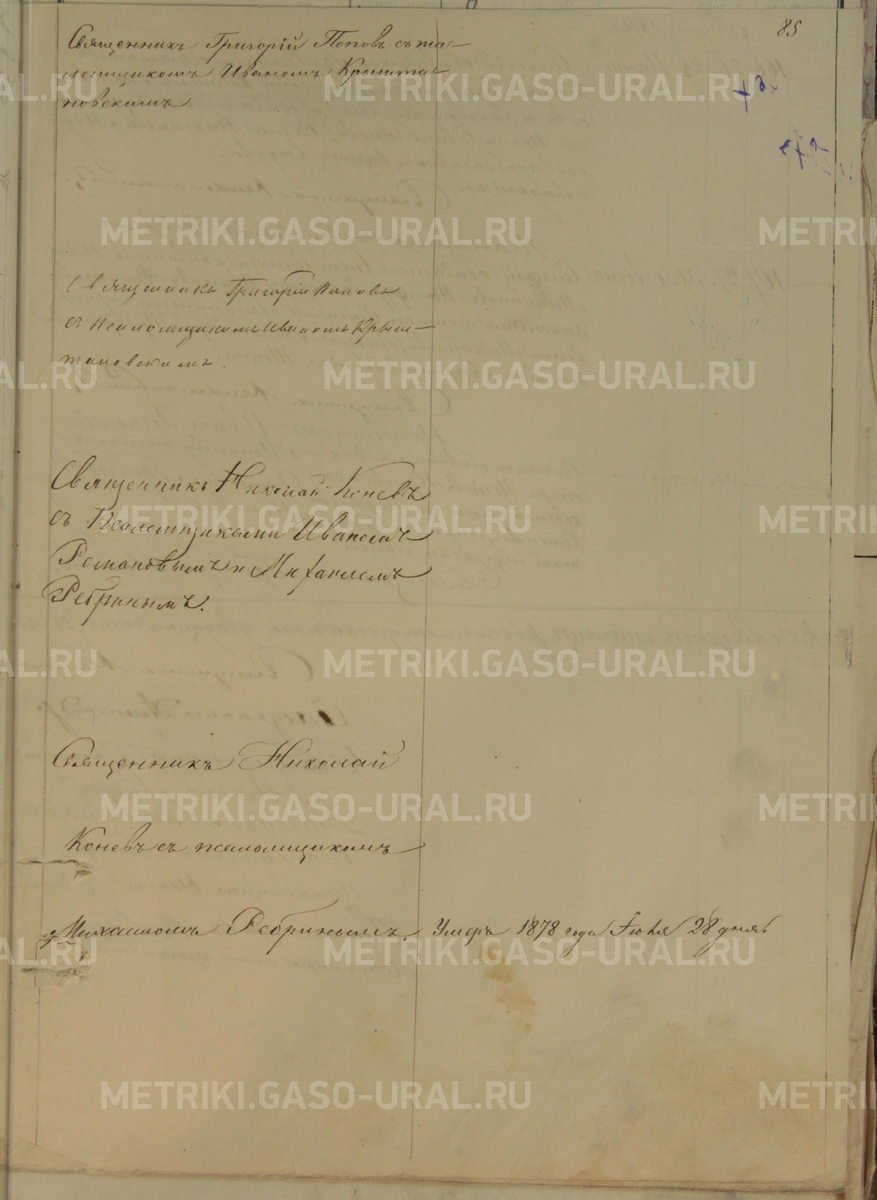 85
Священникъ Григорій Поповъ съ пса-
ломщикомъ Иваномъ Крышта-
новскимъ
Священникъ Григорій Поповъ
съ Псаломщикомъ Иваномъ Крыш-
тановскимъ.
Священникъ Николай Коневъ
съ Псаломщиками Иваномъ
Романовымъ и Михаиломъ
Ребринымъ.
Священникъ Николай
Коневъ съ псаломщикомъ
Михаиломъ Ребринымъ. Умеръ 1878 года Іюля 28 дня.
METRIKI.GASO-URAL.RU